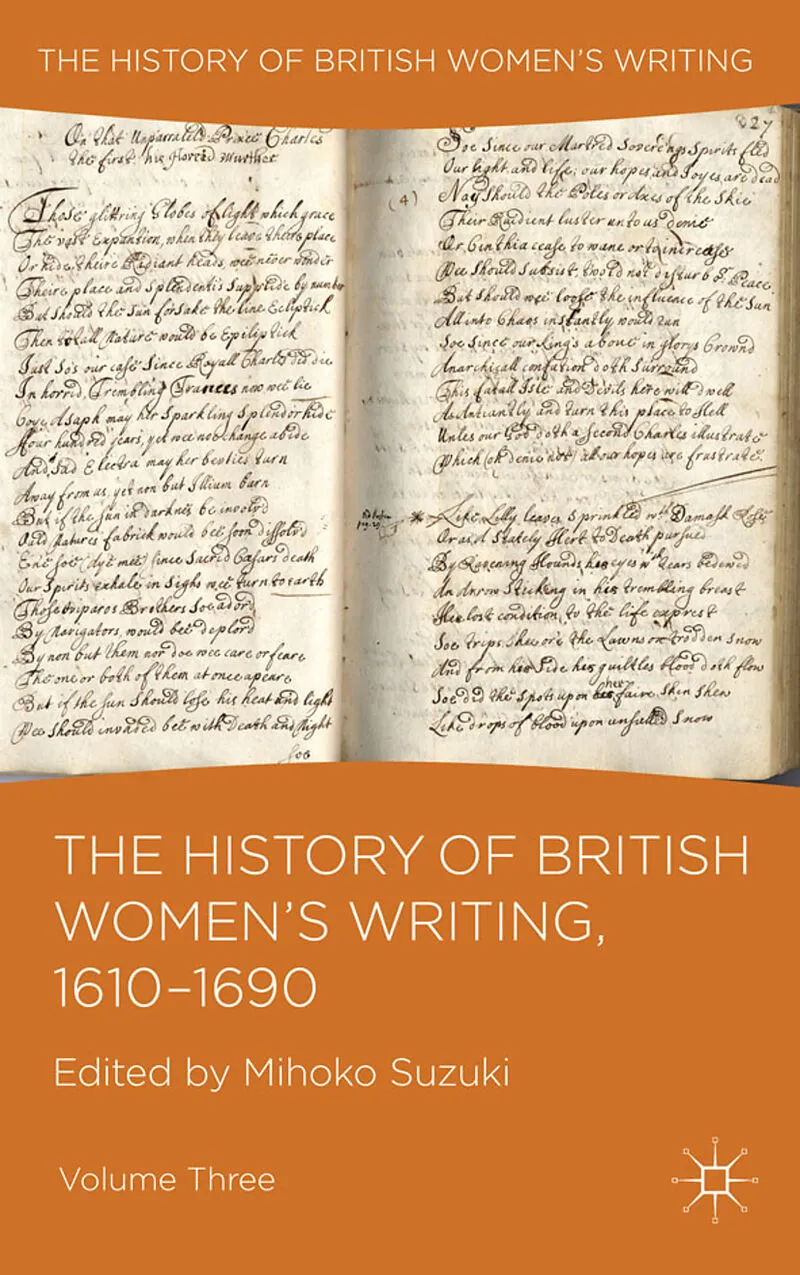 THE HISTORY OF BRITISH WOMEN'S WRITING
On that Unparraleld Prince Charles
the first his horrid Murther
Those glittring Globes of light which grace
The vast Expantion, when they leave theire place
Or hide theire Radiant heads, wee never wonder
Theire place and Splendentis Supplide by number
But should the Sun forsake the line Ecliptick
Then totall Nature would be Epiliptick
Just So's our case Since Royall Charles did die
In horrid, Trembling Trances now wee lie
Coye Asaph may her Sparkling Splendor hide
ffour hundred years, yet wee noe change abide
And Sad Electra may her beuties turn
Away from us, yet non but Illium burn
But if the sun in darknes be involv'd
Ould Natures fabrick would bee soon dissolv'd
Ene soe (Aye mee) since Sacred Cæsars death
Our Spirits exhale in Sighs wee turn to earth
Those Brothers Soe ador'd
By Navigators, would bee deplor'd
By non but them nor doe wee care or feare
The one or both of them at once apeare
But if the sun Should lose his heat and light
Wee Should invaded bee with Death and Night
Soe
27
Soe Since our Martred Soveregns Spirits fled
Our light, and life; our hopes, and Joyes are dead
(4)
Nay should the Poles or Axes of the Skie
Their Raidient luster unto us denie
Or Cinthia cease to wane or to increase
Wee Should subsist, two'ld not disturb or Peace
But should wee loose the influence of the Sun
All into Chaos instantly would run
Soe Since our King's above in glorys Crownd
Anarchicall confusion doth Surround
This fatall Isle and Devils here will dwell
As Antiantly and turn this place to Hell
Unles our God doth a Second Charles illustrate
Which (oh denie not) all our hopes are frustrate.
Like Lilly leaves Sprinkled wth Damask Rose
Or as a Stately Hert to Death pursued
By Ravening Hounds, her eyes wth tears bedewed
An Arrow Sticking in her trembling breast
Her lost condition, to the life exprest
Soe trips Shee ore the Lawns on trodden Snow
And from her Side her guiltles blood doth flow
Soe did the Spots upon her faire Skin Shew
Like drops of blood upon unsulled Snow
THE HISTORY OF BRITISH
WOMEN'S WRITING,
1610–1690
Edited by Mihoko Suzuki
Volume Three